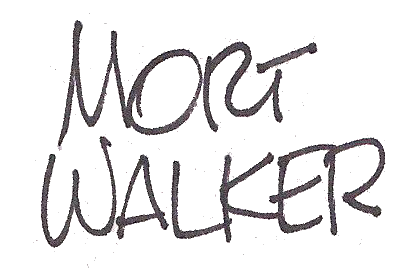 MORT
WALKER